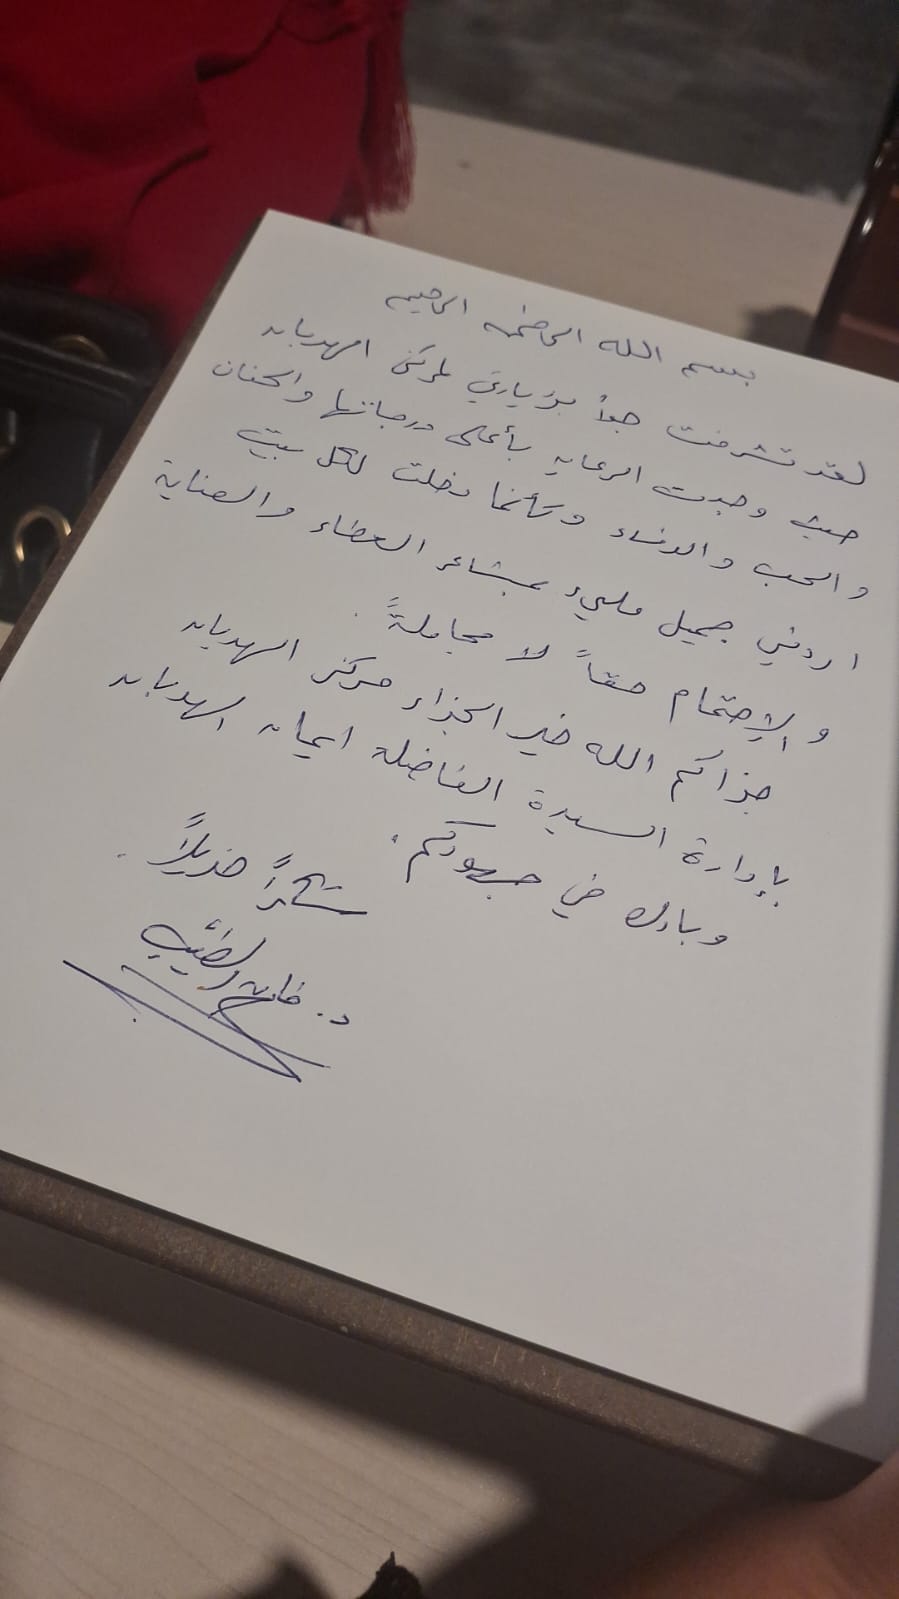 بسم الله الرحمن الرحيم
لقد تشرفت جداً بزيارتي لمركز الهدبان
حيث وجدت الرعايه بأعلى درجاتها والحنان
والحب والوفاء وكأنما دخلت لكل بيت
اردني جميل مليء بمشاعر العطاء والعناية
والإهتمام حقاً لا مجاملةً.
جزاكم الله خير الجزاء مركز الهدبان
بإدارة السيدة الفاضلة ايمان الهدبان
وبارك في جهودكم.
شكراً جزيلاً.
د.